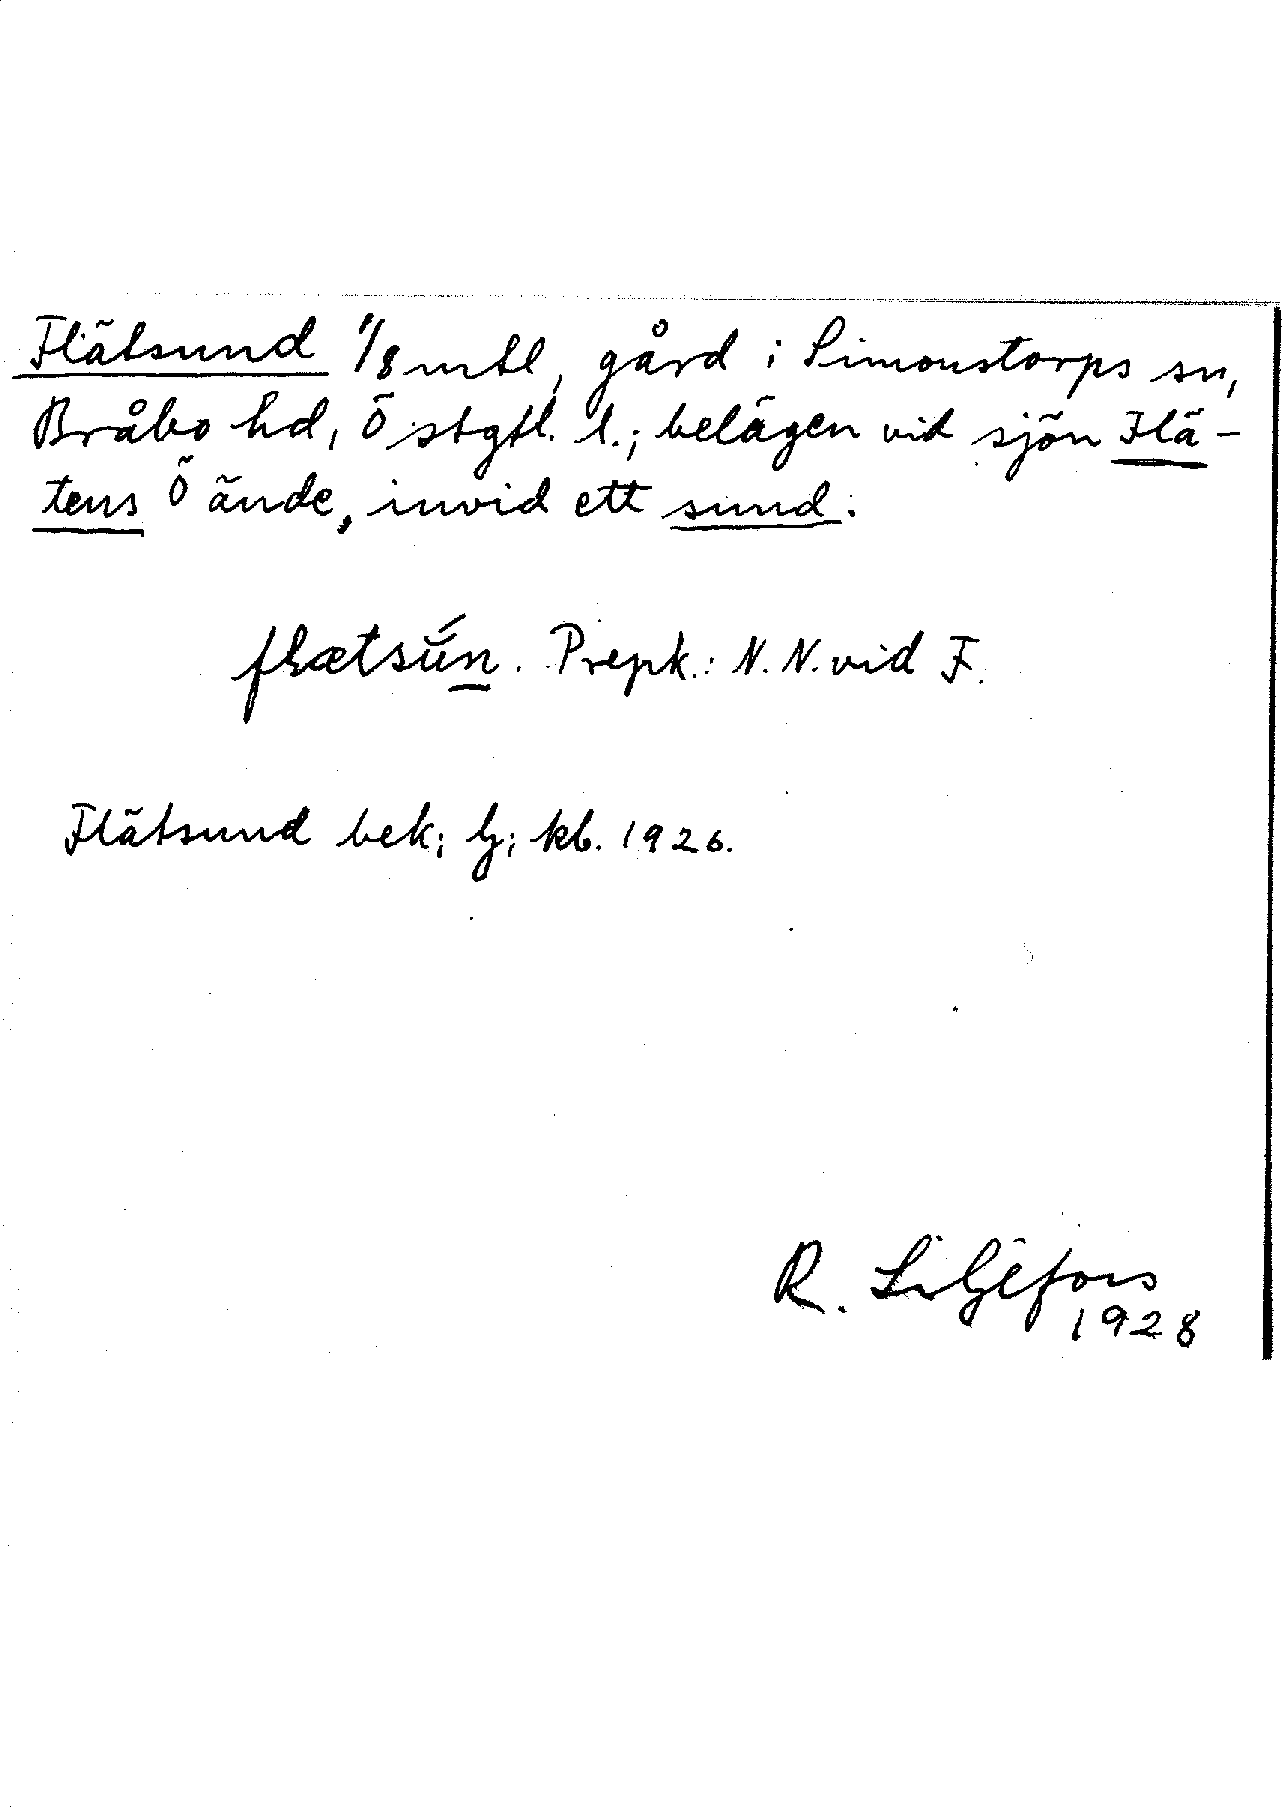 Flätsund 1/8 mtl, gård i Simonstorps sn,
Bråbo hd, Östgtl. l.; belägen vid sjön Flä-
tens Ö ände, invid ett sund.
flætsún. Prepk.: N. N. vid F.
Flätsund bek; lj; kb. 1926.
R. Liljefors
1928